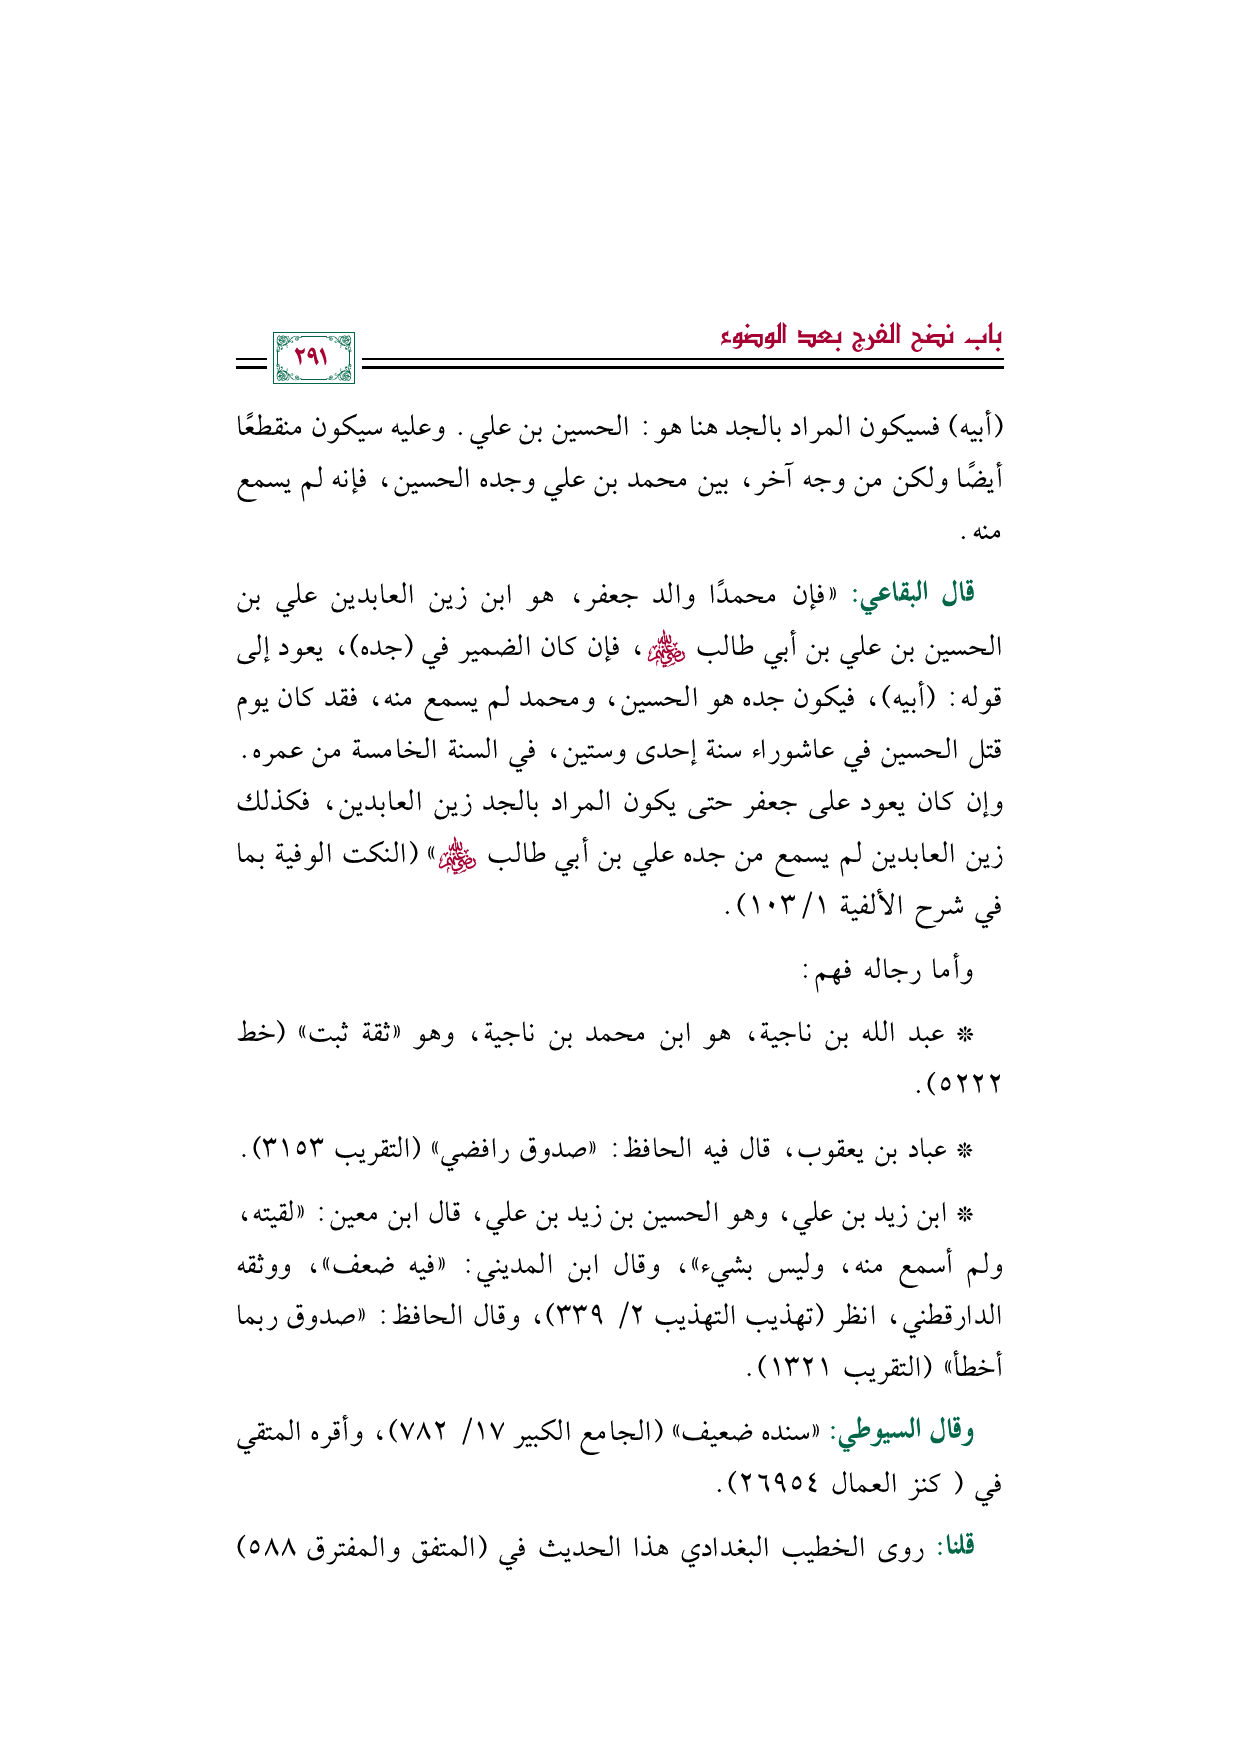 باب نضح الفرج بعد الوضوء
٢٩١
(أبيه) فسيكون المراد بالجد هنا هو: الحسين بن علي. وعليه سيكون منقطعًا
أيضًا ولكن من وجه آخر، بين محمد بن علي وجده الحسين، فإنه لم يسمع
منه.
قال البقاعي: «فإن محمدًا والد جعفر، هو ابن زين العابدين علي بن
الحسين بن علي بن أبي طالب ﵃، فإن كان الضمير في (جده)، يعود إلى
قوله: (أبيه)، فيكون جده هو الحسين، ومحمد لم يسمع منه، فقد كان يوم
قتل الحسين في عاشوراء سنة إحدى وستين، في السنة الخامسة من عمره.
وإن كان يعود على جعفر حتى يكون المراد بالجد زين العابدين، فكذلك
زين العابدين لم يسمع من جده علي بن أبي طالب ﵃» (النكت الوفية بما
في شرح الألفية ١/ ١٠٣).
وأما رجاله فهم:
* عبد الله بن ناجية، هو ابن محمد بن ناجية، وهو «ثقة ثبت» (خط
٥٢٢٢).
* عباد بن يعقوب، قال فيه الحافظ: «صدوق رافضي» (التقريب ٣١٥٣).
* ابن زيد بن علي، وهو الحسين بن زيد بن علي، قال ابن معين: «لقيته،
ولم أسمع منه، وليس بشيء»، وقال ابن المديني: «فيه ضعف»، ووثقه
الدارقطني، انظر (تهذيب التهذيب ٢/ ٣٣٩)، وقال الحافظ: «صدوق ربما
أخطأ» (التقريب ١٣٢١).
وقال السيوطي: «سنده ضعيف» (الجامع الكبير ١٧/ ٧٨٢)، وأقره المتقي
في ( كنز العمال ٢٦٩٥٤).
قلنا: روى الخطيب البغدادي هذا الحديث في (المتفق والمفترق ٥٨٨)